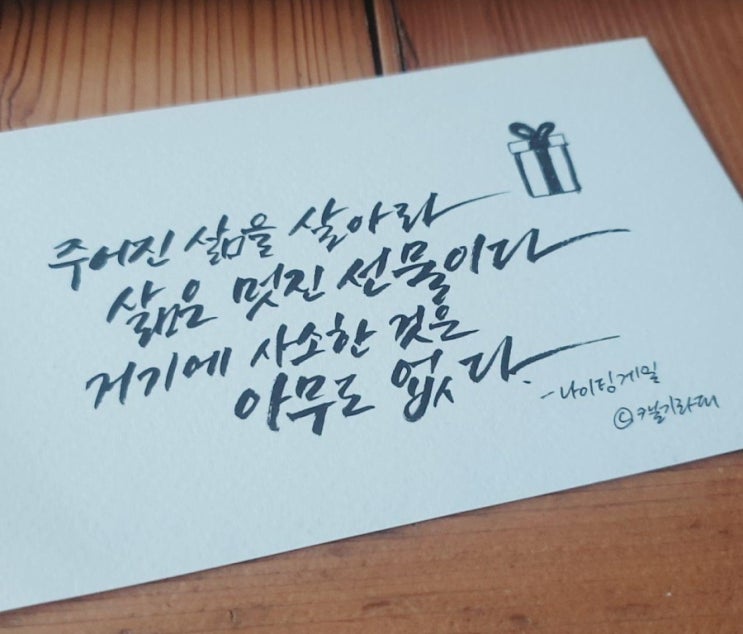 주어진 삶을 살아라
삶은 멋진 선물이다
거기에 사소한 것은
아무도 없다.
-나이팅게일
ⓒ